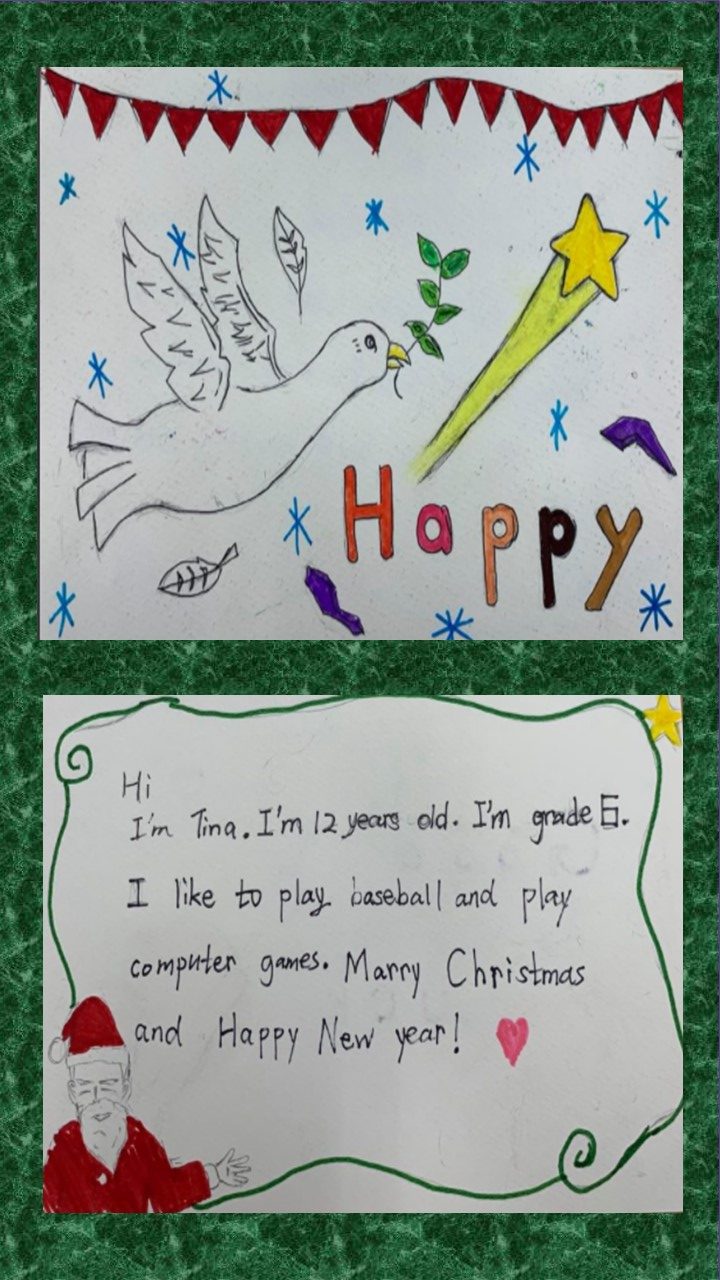 Happy
Hi
I'm Tina. I'm 12 years old. I'm grade 6.
I like to play baseball and play
computer games. Marry Christmas
and Happy New year!